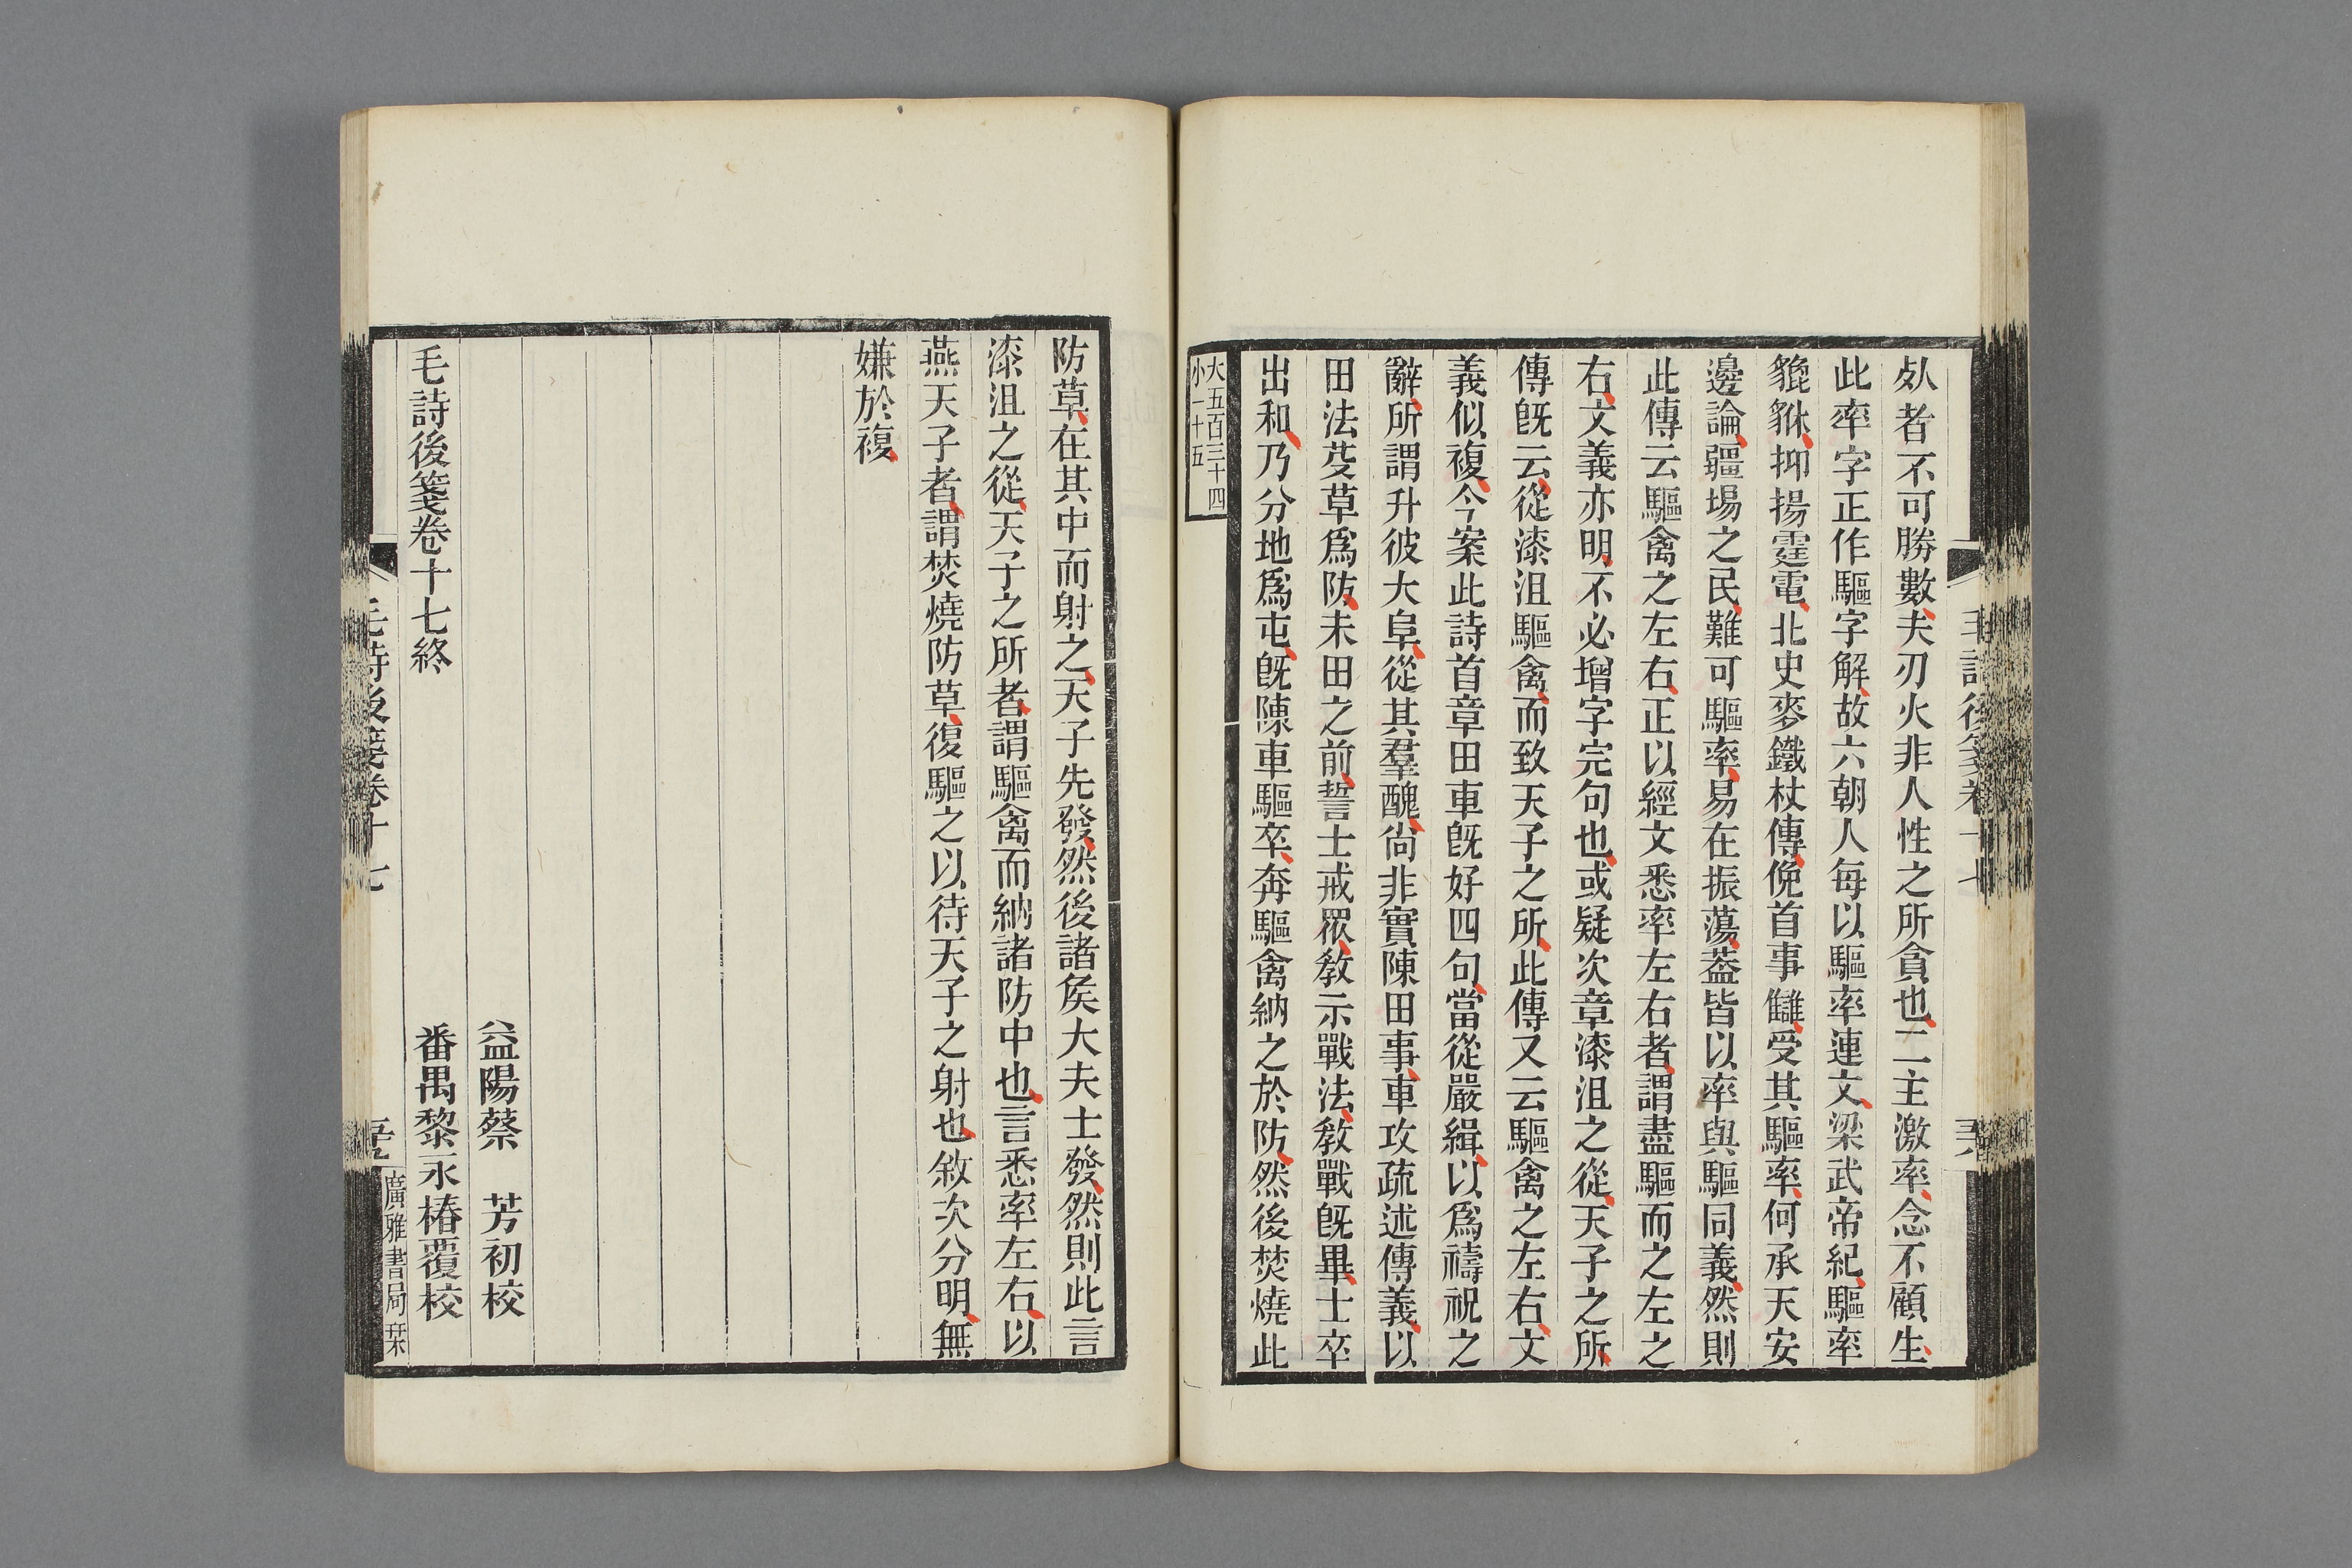 㱙者不可勝數夫刃火非人性之所貪也二主激率念不顧生
此率字正作驅字解故六朝人每以驅率連文梁武帝紀驅率
貔貅抑揚霆電北史麥鐵杖傳俛首事讎受其驅率何承天安
邊論疆埸之民難可驅率易在振蕩葢皆以率與驅同義然則
此傳云驅禽之左右正以經文悉率左右者謂盡驅而之左之
右文義亦明不必增字完句也或疑次章漆沮之從天子之所
傳旣云從漆沮驅禽而致天子之所此傳又云驅禽之左右文
義似複今案此詩首章田車旣好四句當從嚴緝以爲禱祝之
辭所謂升彼大阜從其羣醜尙非實陳田事車攻疏述傳義以
田法芟草爲防未田之前誓士戒眾敎示戰法敎戰旣畢士卒
出和乃分地爲屯旣陳車驅卒奔驅禽納之於防然後焚燒此
大五百三十四
小一十五
防草在其中而射之天子先發然後諸矦大夫士發然則此言
漆沮之從天子之所者謂驅禽而納諸防中也言悉率左右以
燕天子者謂焚燒防草復驅之以待天子之射也敘次分明無
嫌於複
益陽蔡　芳初校
毛詩後箋卷十七終　番禺黎永椿覆校
毛詩後箋卷十七
廣雅書局栞